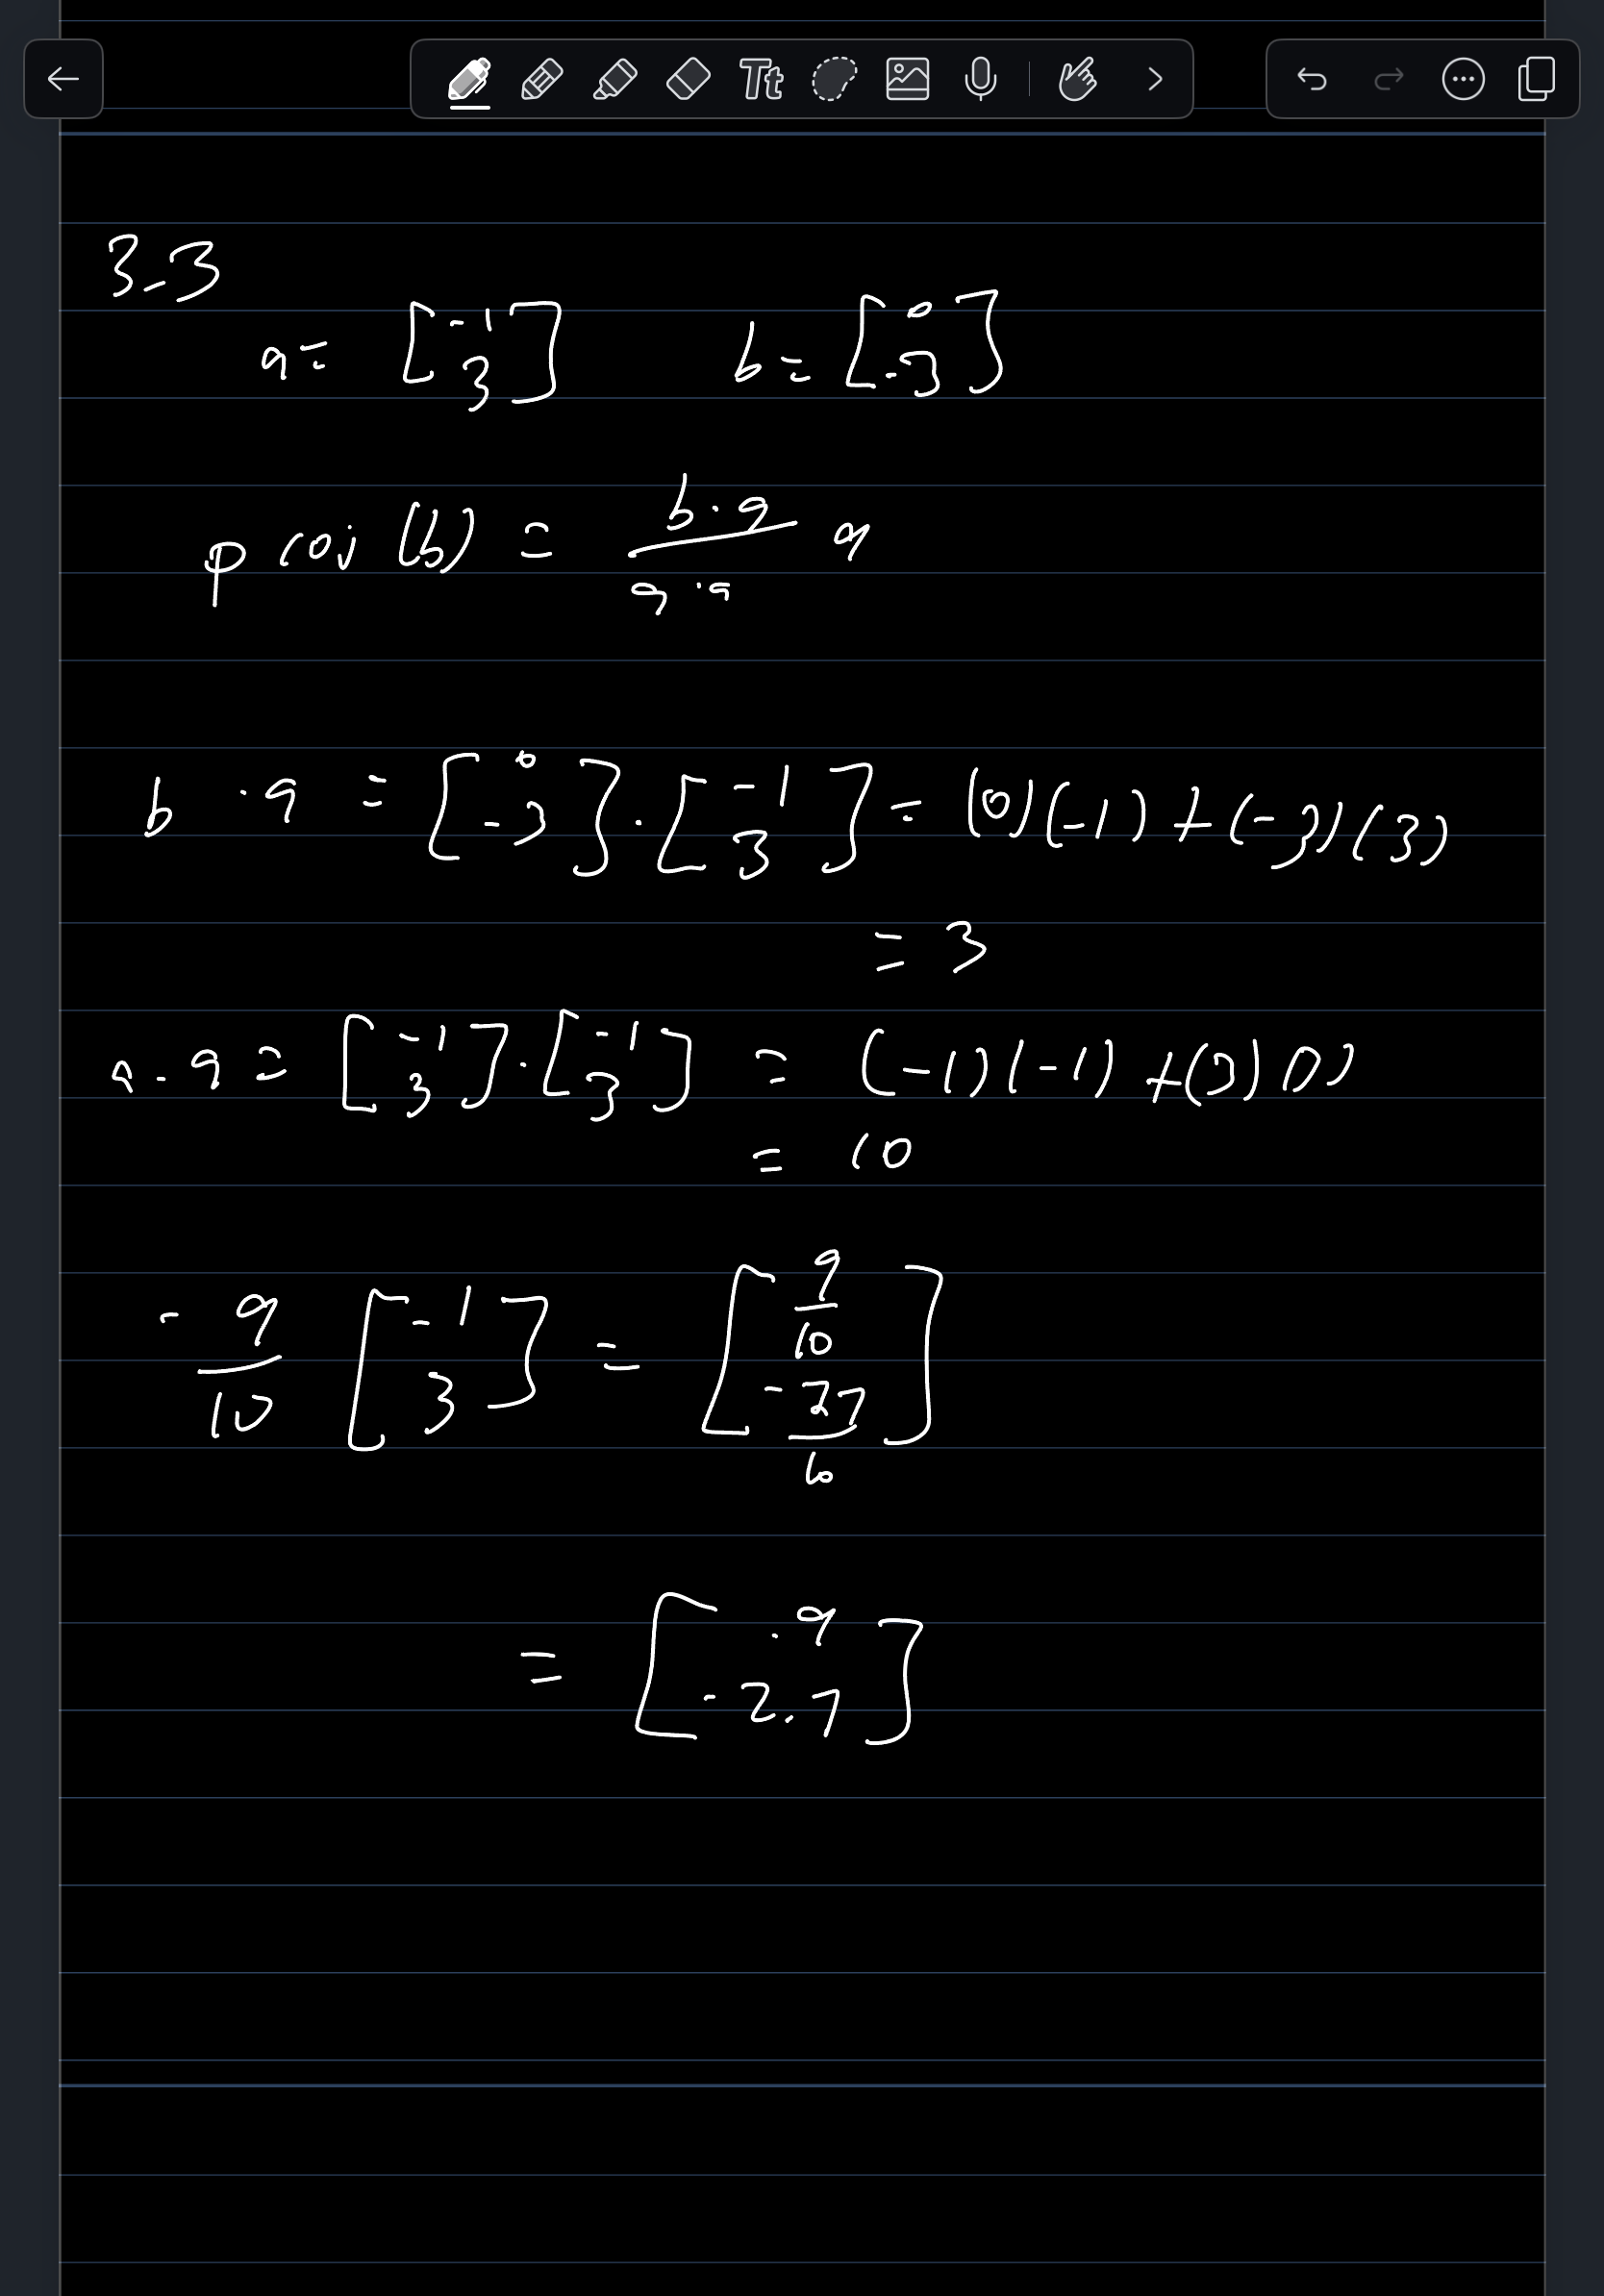 Tt
3-3
a = [-1 3] b = [0 -3]
proj (b) = b·a / a·a a
b · a = [0 -3] · [-1 3] = (0)(-1) + (-3)(3)
= 3
a · a = [-1 3] · [-1 3] = (-1)(-1) + (3)(3)
= 10
- 9/10 [-1 3] = [9/10 -27/10]
= [.9 -2.7]